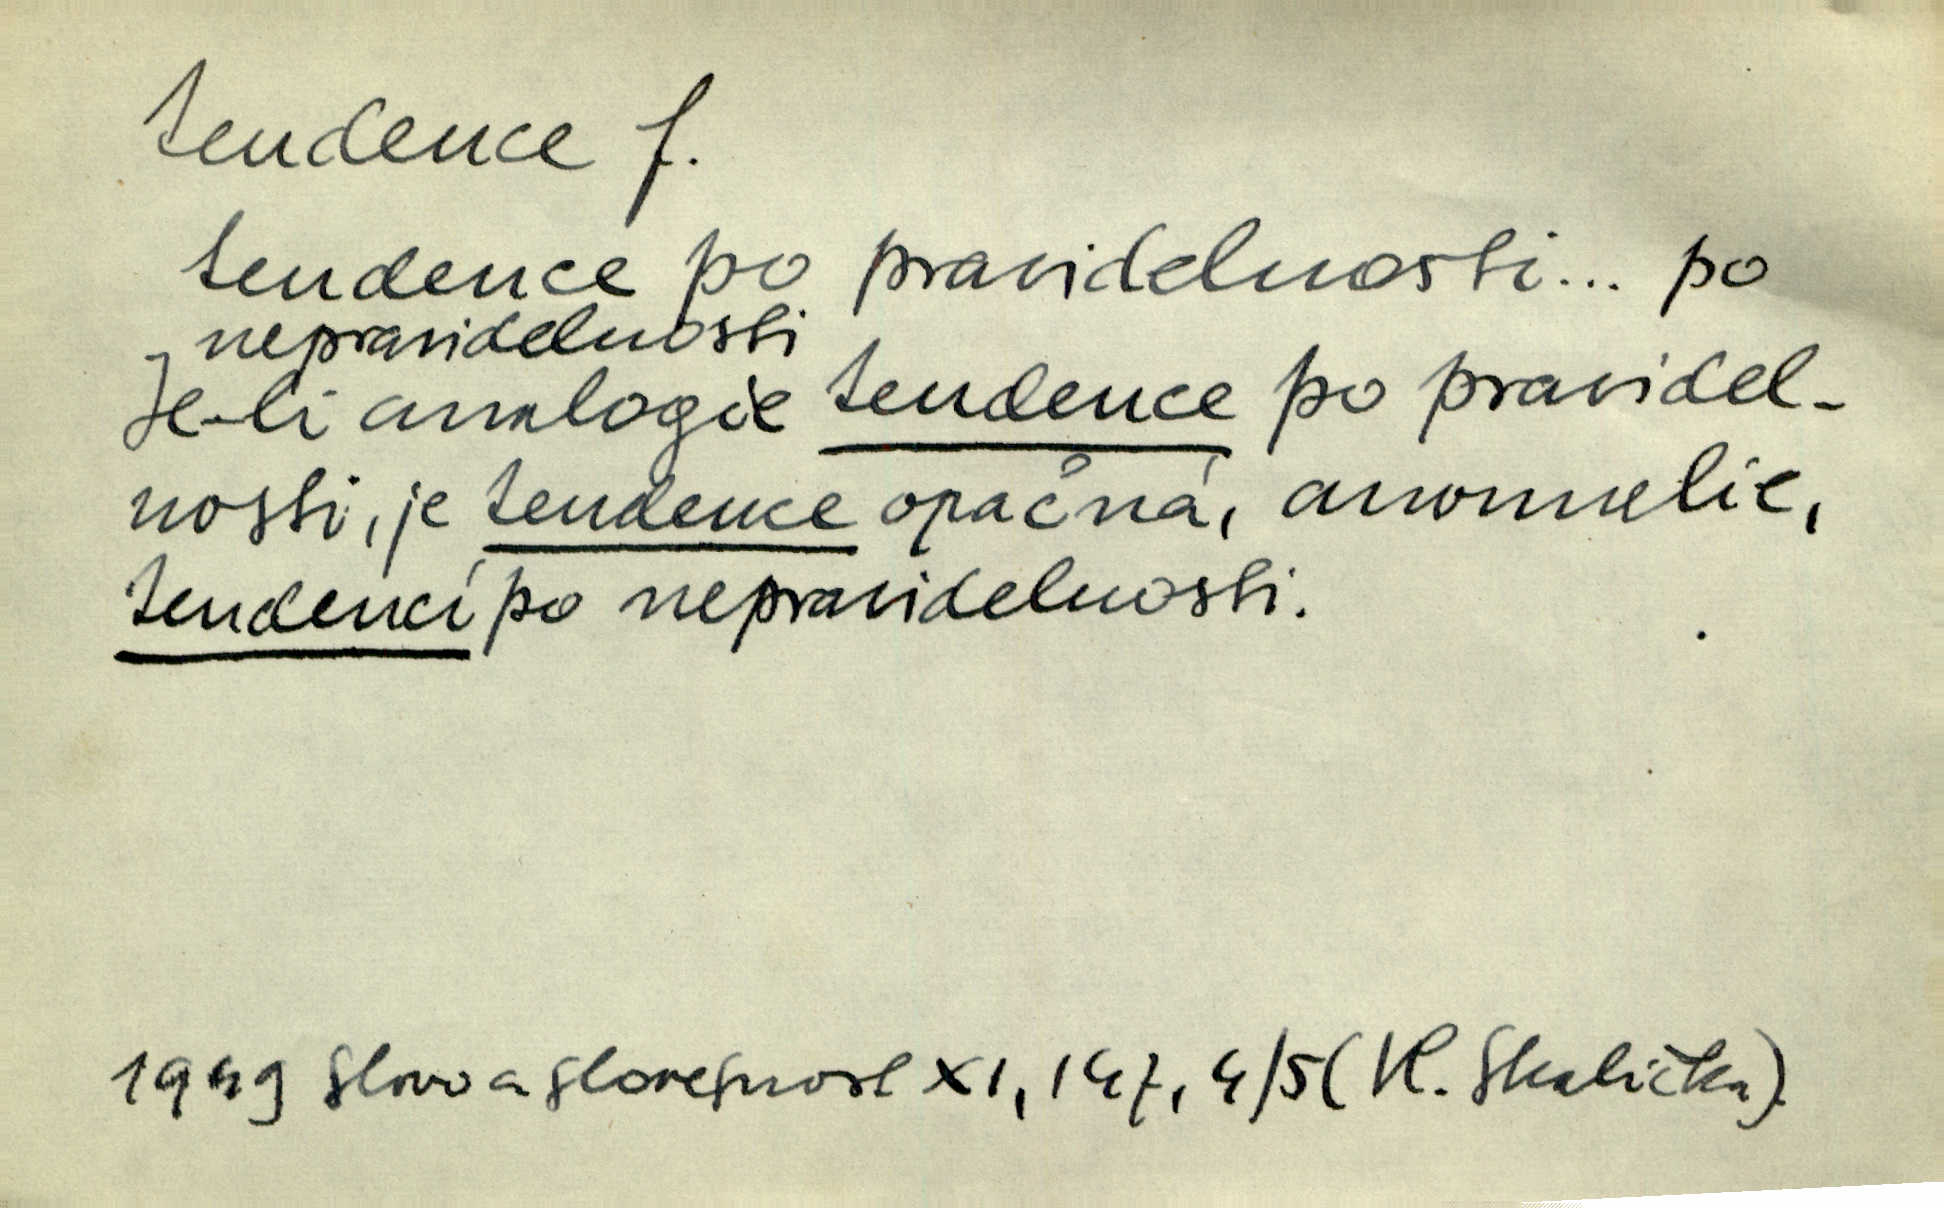 tendence f.
tendence po pravidelnosti... po
nepravidelnosti
Je-li analogie tendence po pravidel-
nosti, je tendence opačná, anomalie,
tendencí po nepravidelnosti.
1949 Slovo a slovesnost XI, 147, 4/5 (Vl. Skalička).